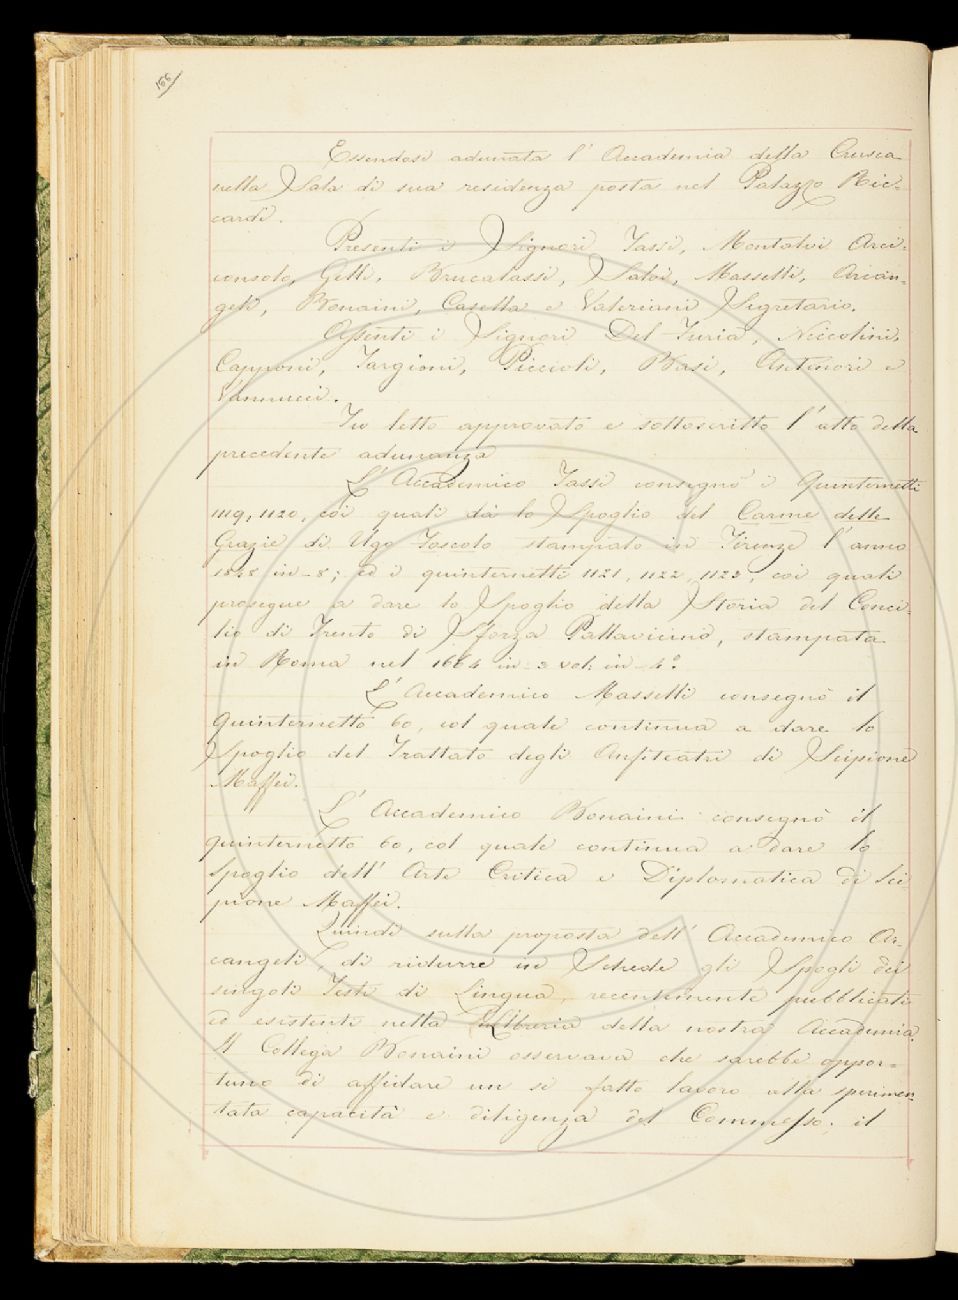 166
Essendosi adunata l' Accademia della Crusca
nella Sala di sua residenza posta nel Palazzo Ric-
cardi.
Presenti i Signori Tassi, Montalvi Arci-
consolo, Gelli, Brucalassi, Salvi, Masselli, Arcan-
geli, Bonaini, Casella e Valeriani Segretario.
Assenti i Signori Del Furia, Niccolini,
Capponi, Targioni, Piccioli, Basi, Antinori e
Vannucci.
Fu letto approvato e sottoscritto l' atto della
precedente adunanza
L' Accademico Tassi consegnò i Quinternetti
1119, 1120, coi quali dà lo Spoglio del Carme delle
Grazie di Ugo Foscolo stampato in Firenze l' anno
1848 in-8; ed i quinternetti 1121, 1122, 1123, coi quali
prosegue a dare lo Spoglio della Storia del Conci-
lio di Trento di Sforza Pallavicino, stampata
in Roma nel 1664 in 3 vol: in-4.º
L' Accademico Masselli consegnò il
Quinternetto 60, col quale continua a dare lo
Spoglio del Trattato degli Anfiteatri di Scipione
Maffei.
L' Accademico Bonaini consegnò il
quinternetto 60, col quale continua a dare lo
Spoglio dell' Arte Critica e Diplomatica di Sci-
pione Maffei.
Quindi sulla proposta dell' Accademico Ar-
cangeli, di ridurre in Schede gli Spogli dei
singoli Testi di Lingua, recentemente pubblicati
ed esistenti nella Libreria della nostra Accademia.
Il Collega Bonaini osservava che sarebbe oppor-
tuno di affidare un sì fatto lavoro alla sperimen-
tata capacità e diligenza del Commesso; il